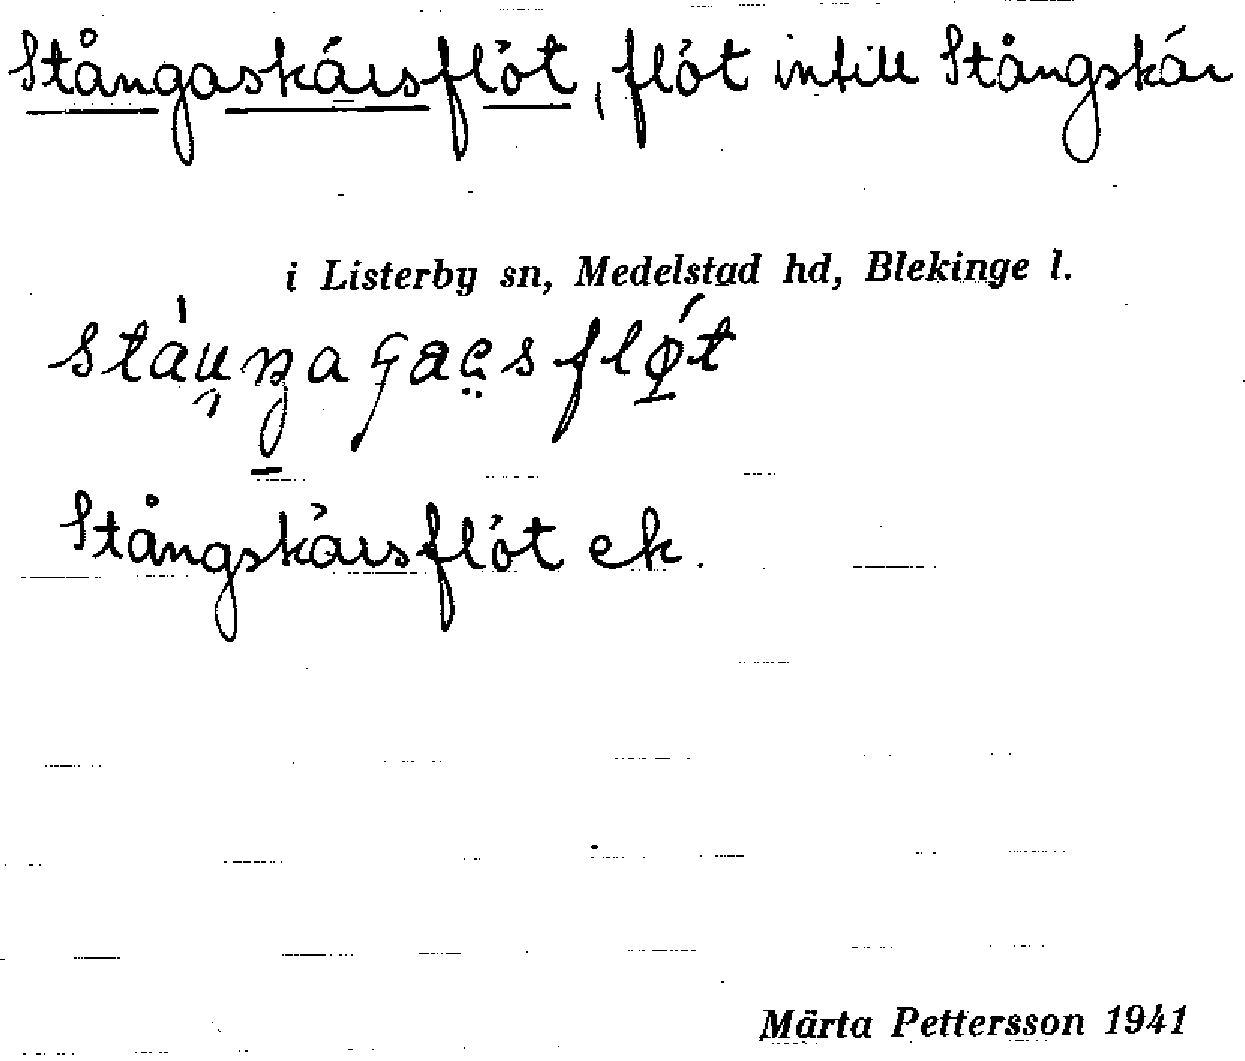 Stångaskärsflöt, flöt intill Stångskär
i Listerby sn, Medelstad hd, Blekinge l.
Stångskärsflöt ek.
Märta Pettersson 1941